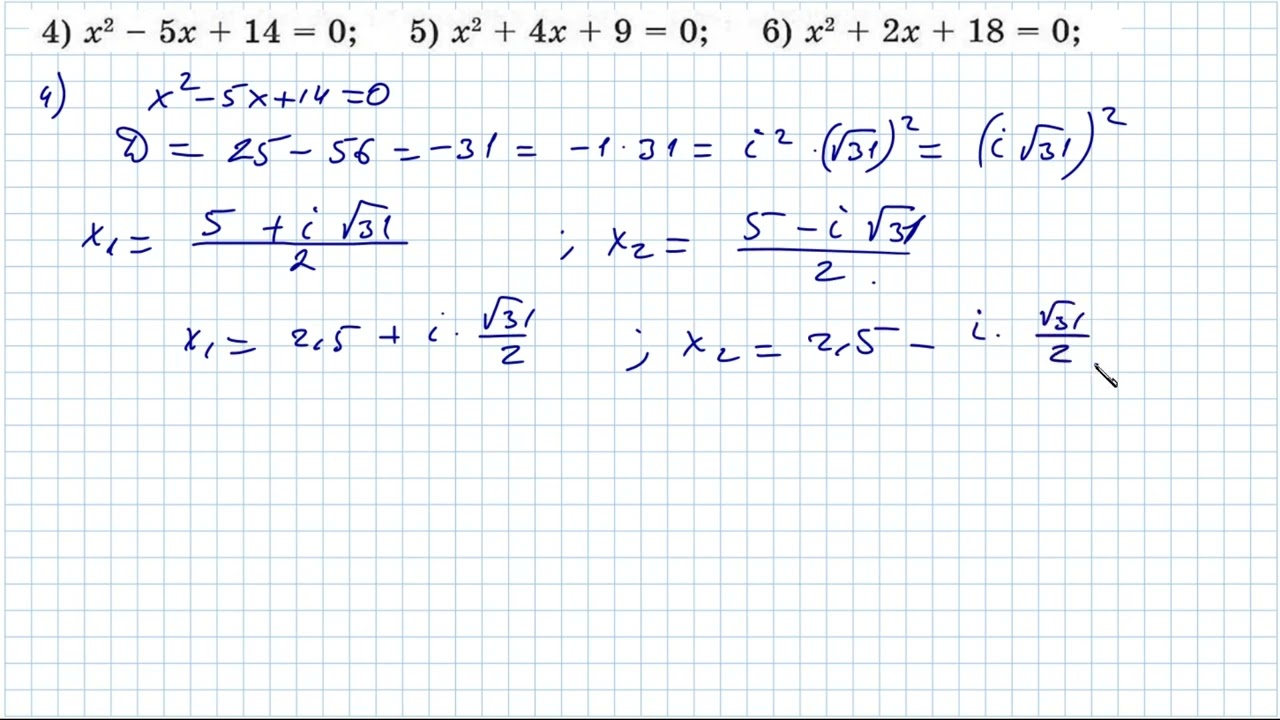 4) x² − 5x + 14 = 0; 5) x² + 4x + 9 = 0; 6) x² + 2x + 18 = 0;
4) x² − 5x + 14 = 0
D = 25 − 56 = −31 = −1 · 31 = i² · (√31)² = (i √31)²
x₁ = (5 + i √31)/2 ; x₂ = (5 − i √31)/2 .
x₁ = 2,5 + i · √31/2 ; x₂ = 2,5 − i · √31/2